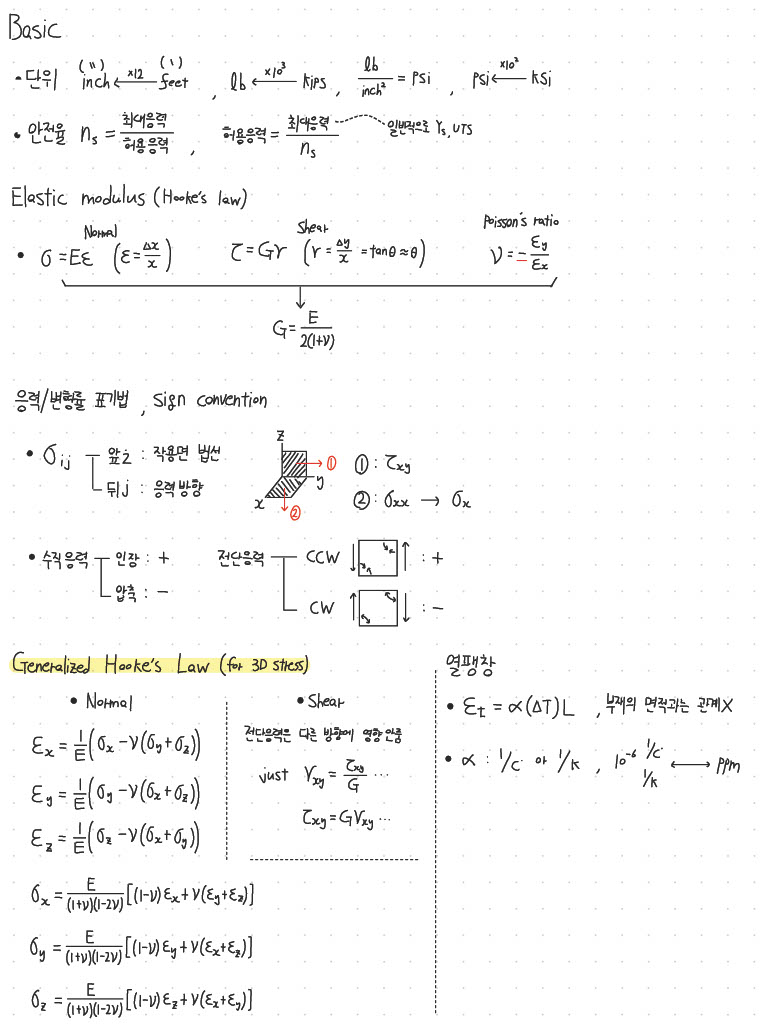 Basic
• 단위 inch(") ←×12 feet(') , lb ←×10³ kips , lb/inch² = psi , psi ←×10³ ksi
• 안전율 nₛ = 최대응력/허용응력 , 허용응력 = 최대응력/nₛ 일반적으로 Yₛ, UTS
Elastic modulus (Hooke's law)
Normal Shear Poisson's ratio
• σ = Eε (ε = Δx/x) τ = Gγ (γ = Δy/x = tanθ ≈ θ) ν = −εy/εx
G = E/2(1+ν)
응력/변형률 표기법 , Sign convention
• σij 앞i : 작용면 법선
뒤j : 응력방향
z y x ① ②
① : τxy
② : σxx → σx
• 수직응력 인장 : +
압축 : −
전단응력 CCW : +
CW : −
Generalized Hooke's Law (for 3D stress)
• Normal
εx = 1/E(σx − ν(σy + σz))
εy = 1/E(σy − ν(σx + σz))
εz = 1/E(σz − ν(σx + σy))
• Shear
전단응력은 다른 방향에 영향 안줌
just γxy = τxy/G ...
τxy = Gγxy ...
σx = E/(1+ν)(1-2ν) [(1-ν)εx + ν(εy + εz)]
σy = E/(1+ν)(1-2ν) [(1-ν)εy + ν(εx + εz)]
σz = E/(1+ν)(1-2ν) [(1-ν)εz + ν(εx + εy)]
열팽창
• εt = α(ΔT)L , 부재의 면적과는 관계X
• α : 1/c or 1/k , 10⁻⁶ 1/c 1/k ↔ ppm